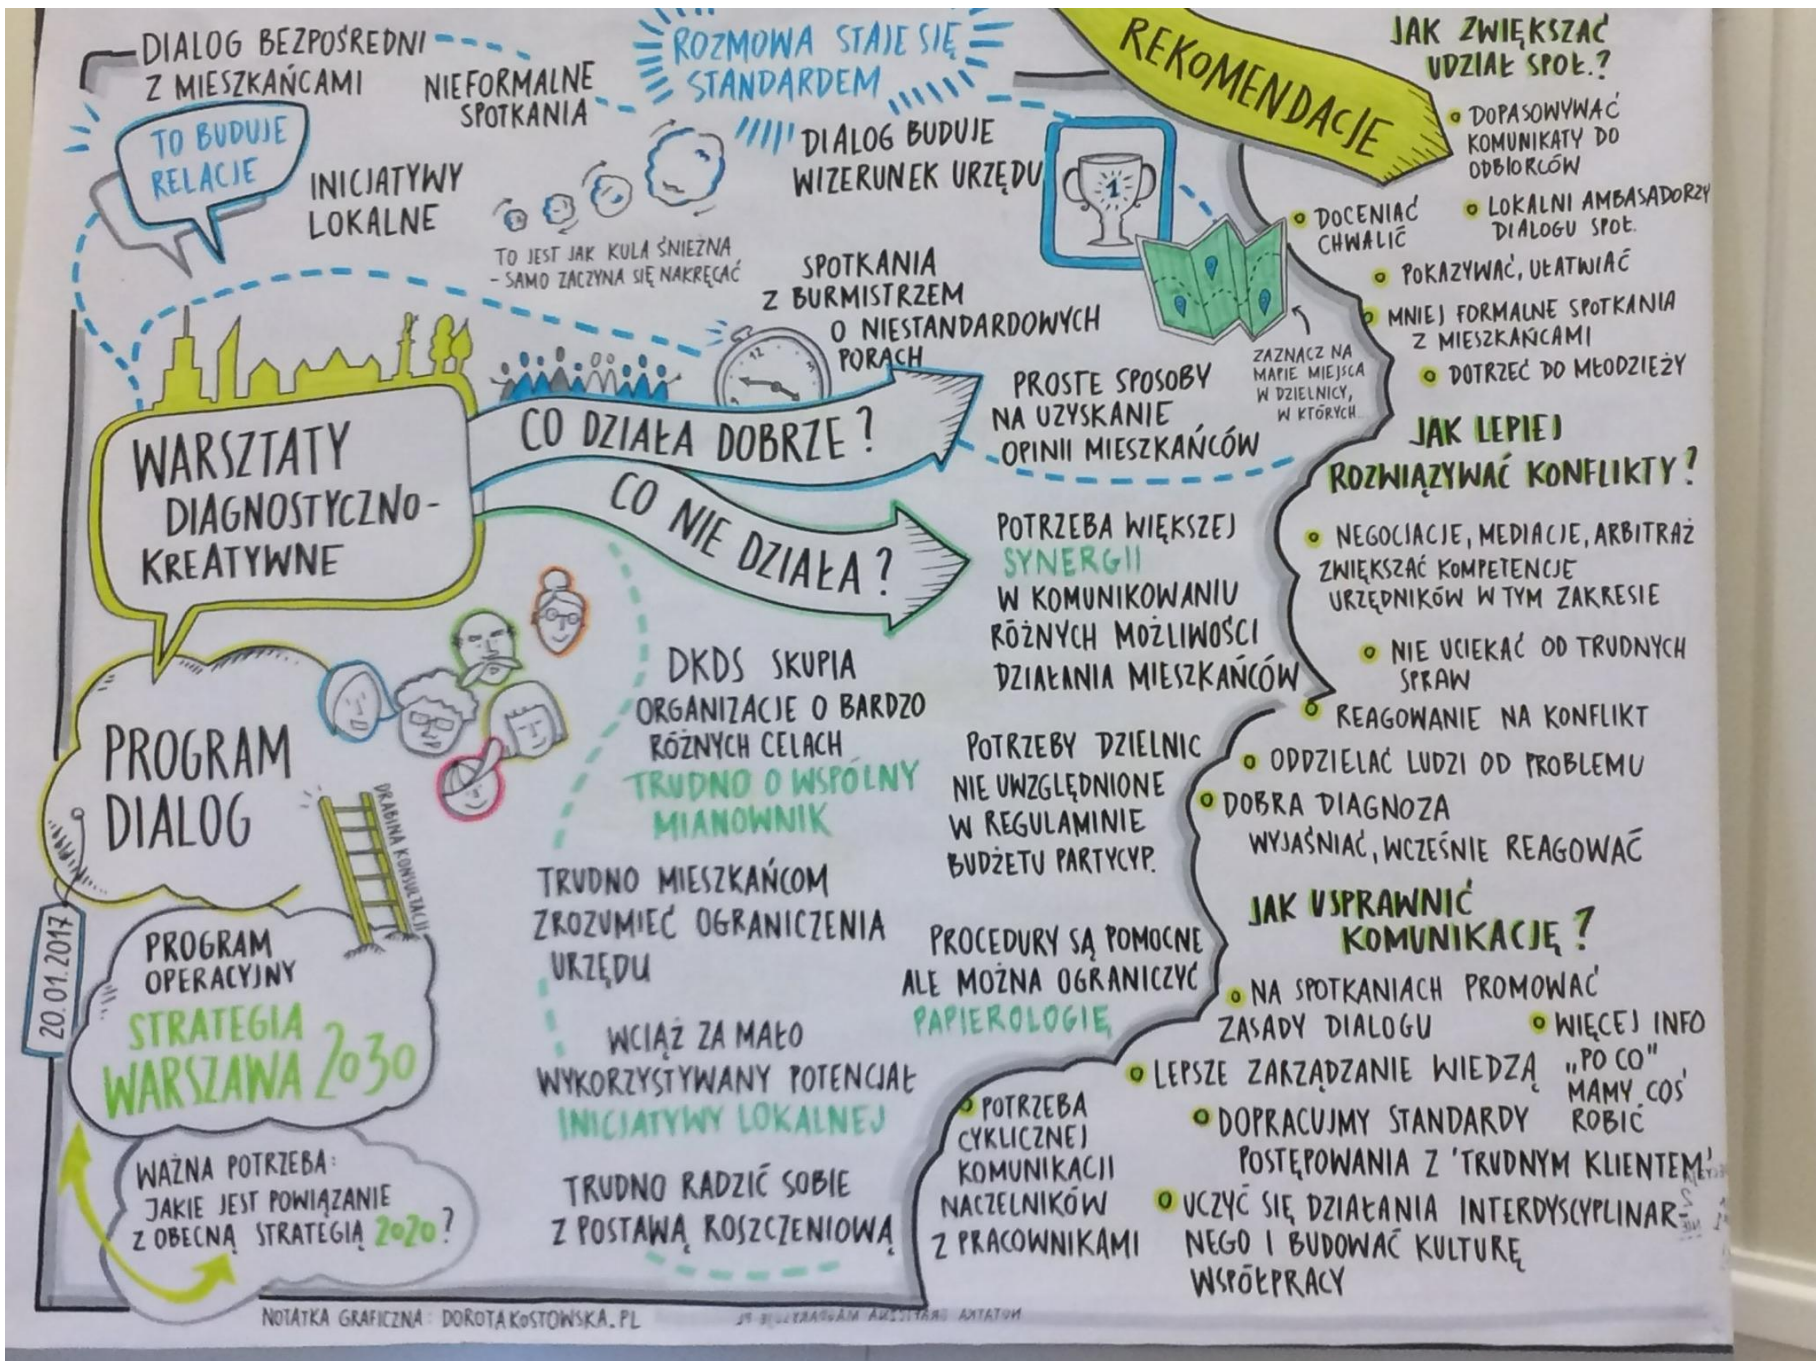 DIALOG BEZPOŚREDNI
Z MIESZKAŃCAMI
NIEFORMALNE
SPOTKANIA
ROZMOWA STAJE SIĘ
STANDARDEM
TO BUDUJE
RELACJE
INICJATYWY
LOKALNE
TO JEST JAK KULA ŚNIEŻNA
- SAMO ZACZYNA SIĘ NAKRĘCAĆ
DIALOG BUDUJE
WIZERUNEK URZĘDU
1
SPOTKANIA
Z BURMISTRZEM
O NIESTANDARDOWYCH
PORACH
12
ZAZNACZ NA
MAPIE MIEJSCA
W DZIELNICY,
W KTÓRYCH...
PROSTE SPOSOBY
NA UZYSKANIE
OPINII MIESZKAŃCÓW
WARSZTATY
DIAGNOSTYCZNO-
KREATYWNE
CO DZIAŁA DOBRZE?
CO NIE DZIAŁA?
PROGRAM
DIALOG
DRABINA KONSULTACJI
20.01.2017
PROGRAM
OPERACYJNY
STRATEGIA
WARSZAWA 2030
WAŻNA POTRZEBA:
JAKIE JEST POWIĄZANIE
Z OBECNĄ STRATEGIĄ 2020?
DKDS SKUPIA
ORGANIZACJE O BARDZO
RÓŻNYCH CELACH
TRUDNO O WSPÓLNY
MIANOWNIK
TRUDNO MIESZKAŃCOM
ZROZUMIEĆ OGRANICZENIA
URZĘDU
WCIĄŻ ZA MAŁO
WYKORZYSTYWANY POTENCJAŁ
INICJATYWY LOKALNEJ
TRUDNO RADZIĆ SOBIE
Z POSTAWĄ ROSZCZENIOWĄ
POTRZEBA WIĘKSZEJ
SYNERGII
W KOMUNIKOWANIU
RÓŻNYCH MOŻLIWOŚCI
DZIAŁANIA MIESZKAŃCÓW
POTRZEBY DZIELNIC
NIE UWZGLĘDNIONE
W REGULAMINIE
BUDŻETU PARTYCYP.
PROCEDURY SĄ POMOCNE
ALE MOŻNA OGRANICZYĆ
PAPIEROLOGIĘ
REKOMENDACJE
JAK ZWIĘKSZAĆ
UDZIAŁ SPOŁ.?
DOPASOWYWAĆ
KOMUNIKATY DO
ODBIORCÓW
DOCENIAĆ
CHWALIĆ
LOKALNI AMBASADORZY
DIALOGU SPOŁ.
POKAZYWAĆ, UŁATWIAĆ
MNIEJ FORMALNE SPOTKANIA
Z MIESZKAŃCAMI
DOTRZEĆ DO MŁODZIEŻY
JAK LEPIEJ
ROZWIĄZYWAĆ KONFLIKTY?
NEGOCJACJE, MEDIACJE, ARBITRAŻ
ZWIĘKSZAĆ KOMPETENCJE
URZĘDNIKÓW W TYM ZAKRESIE
NIE UCIEKAĆ OD TRUDNYCH
SPRAW
REAGOWANIE NA KONFLIKT
ODDZIELAĆ LUDZI OD PROBLEMU
DOBRA DIAGNOZA
WYJAŚNIAĆ, WCZEŚNIE REAGOWAĆ
JAK USPRAWNIĆ
KOMUNIKACJĘ?
NA SPOTKANIACH PROMOWAĆ
ZASADY DIALOGU
WIĘCEJ INFO
„PO CO"
MAMY COŚ
ROBIĆ
LEPSZE ZARZĄDZANIE WIEDZĄ
DOPRACUJMY STANDARDY
POSTĘPOWANIA Z 'TRUDNYM KLIENTEM'
POTRZEBA
CYKLICZNEJ
KOMUNIKACJI
NACZELNIKÓW
Z PRACOWNIKAMI
UCZYĆ SIĘ DZIAŁANIA INTERDYSCYPLINAR-
NEGO I BUDOWAĆ KULTURĘ
WSPÓŁPRACY
NOTATKA GRAFICZNA: DOROTAKOSTOWSKA.PL